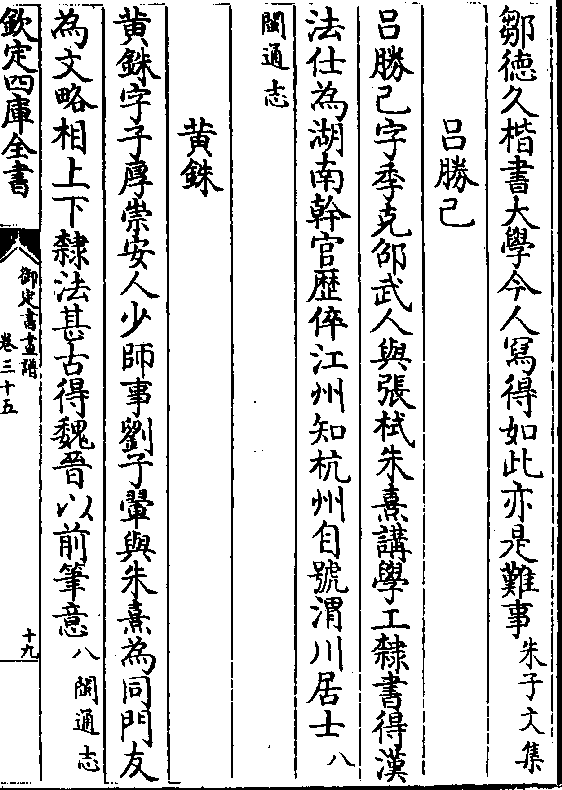 鄒德久楷書大學今人寫得如此亦是難事朱子文集
呂勝己
呂勝己字季克邵武人與張栻朱熹講學工隸書得漢
法仕為湖南幹官歷倅江州知杭州自號渭川居士八
閩通志
黄銖
黄銖字子厚崇安人少師事劉子翬與朱熹為同門友
為文略相上下隸法甚古得魏晉以前筆意八閩通志
欽定四庫全書
御定書畫譜
卷三十五
十九